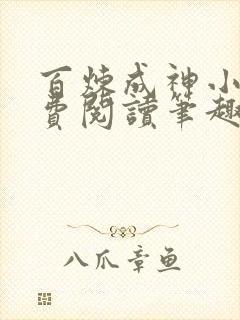 百炼成神小
费阅读笔趣
八爪章鱼